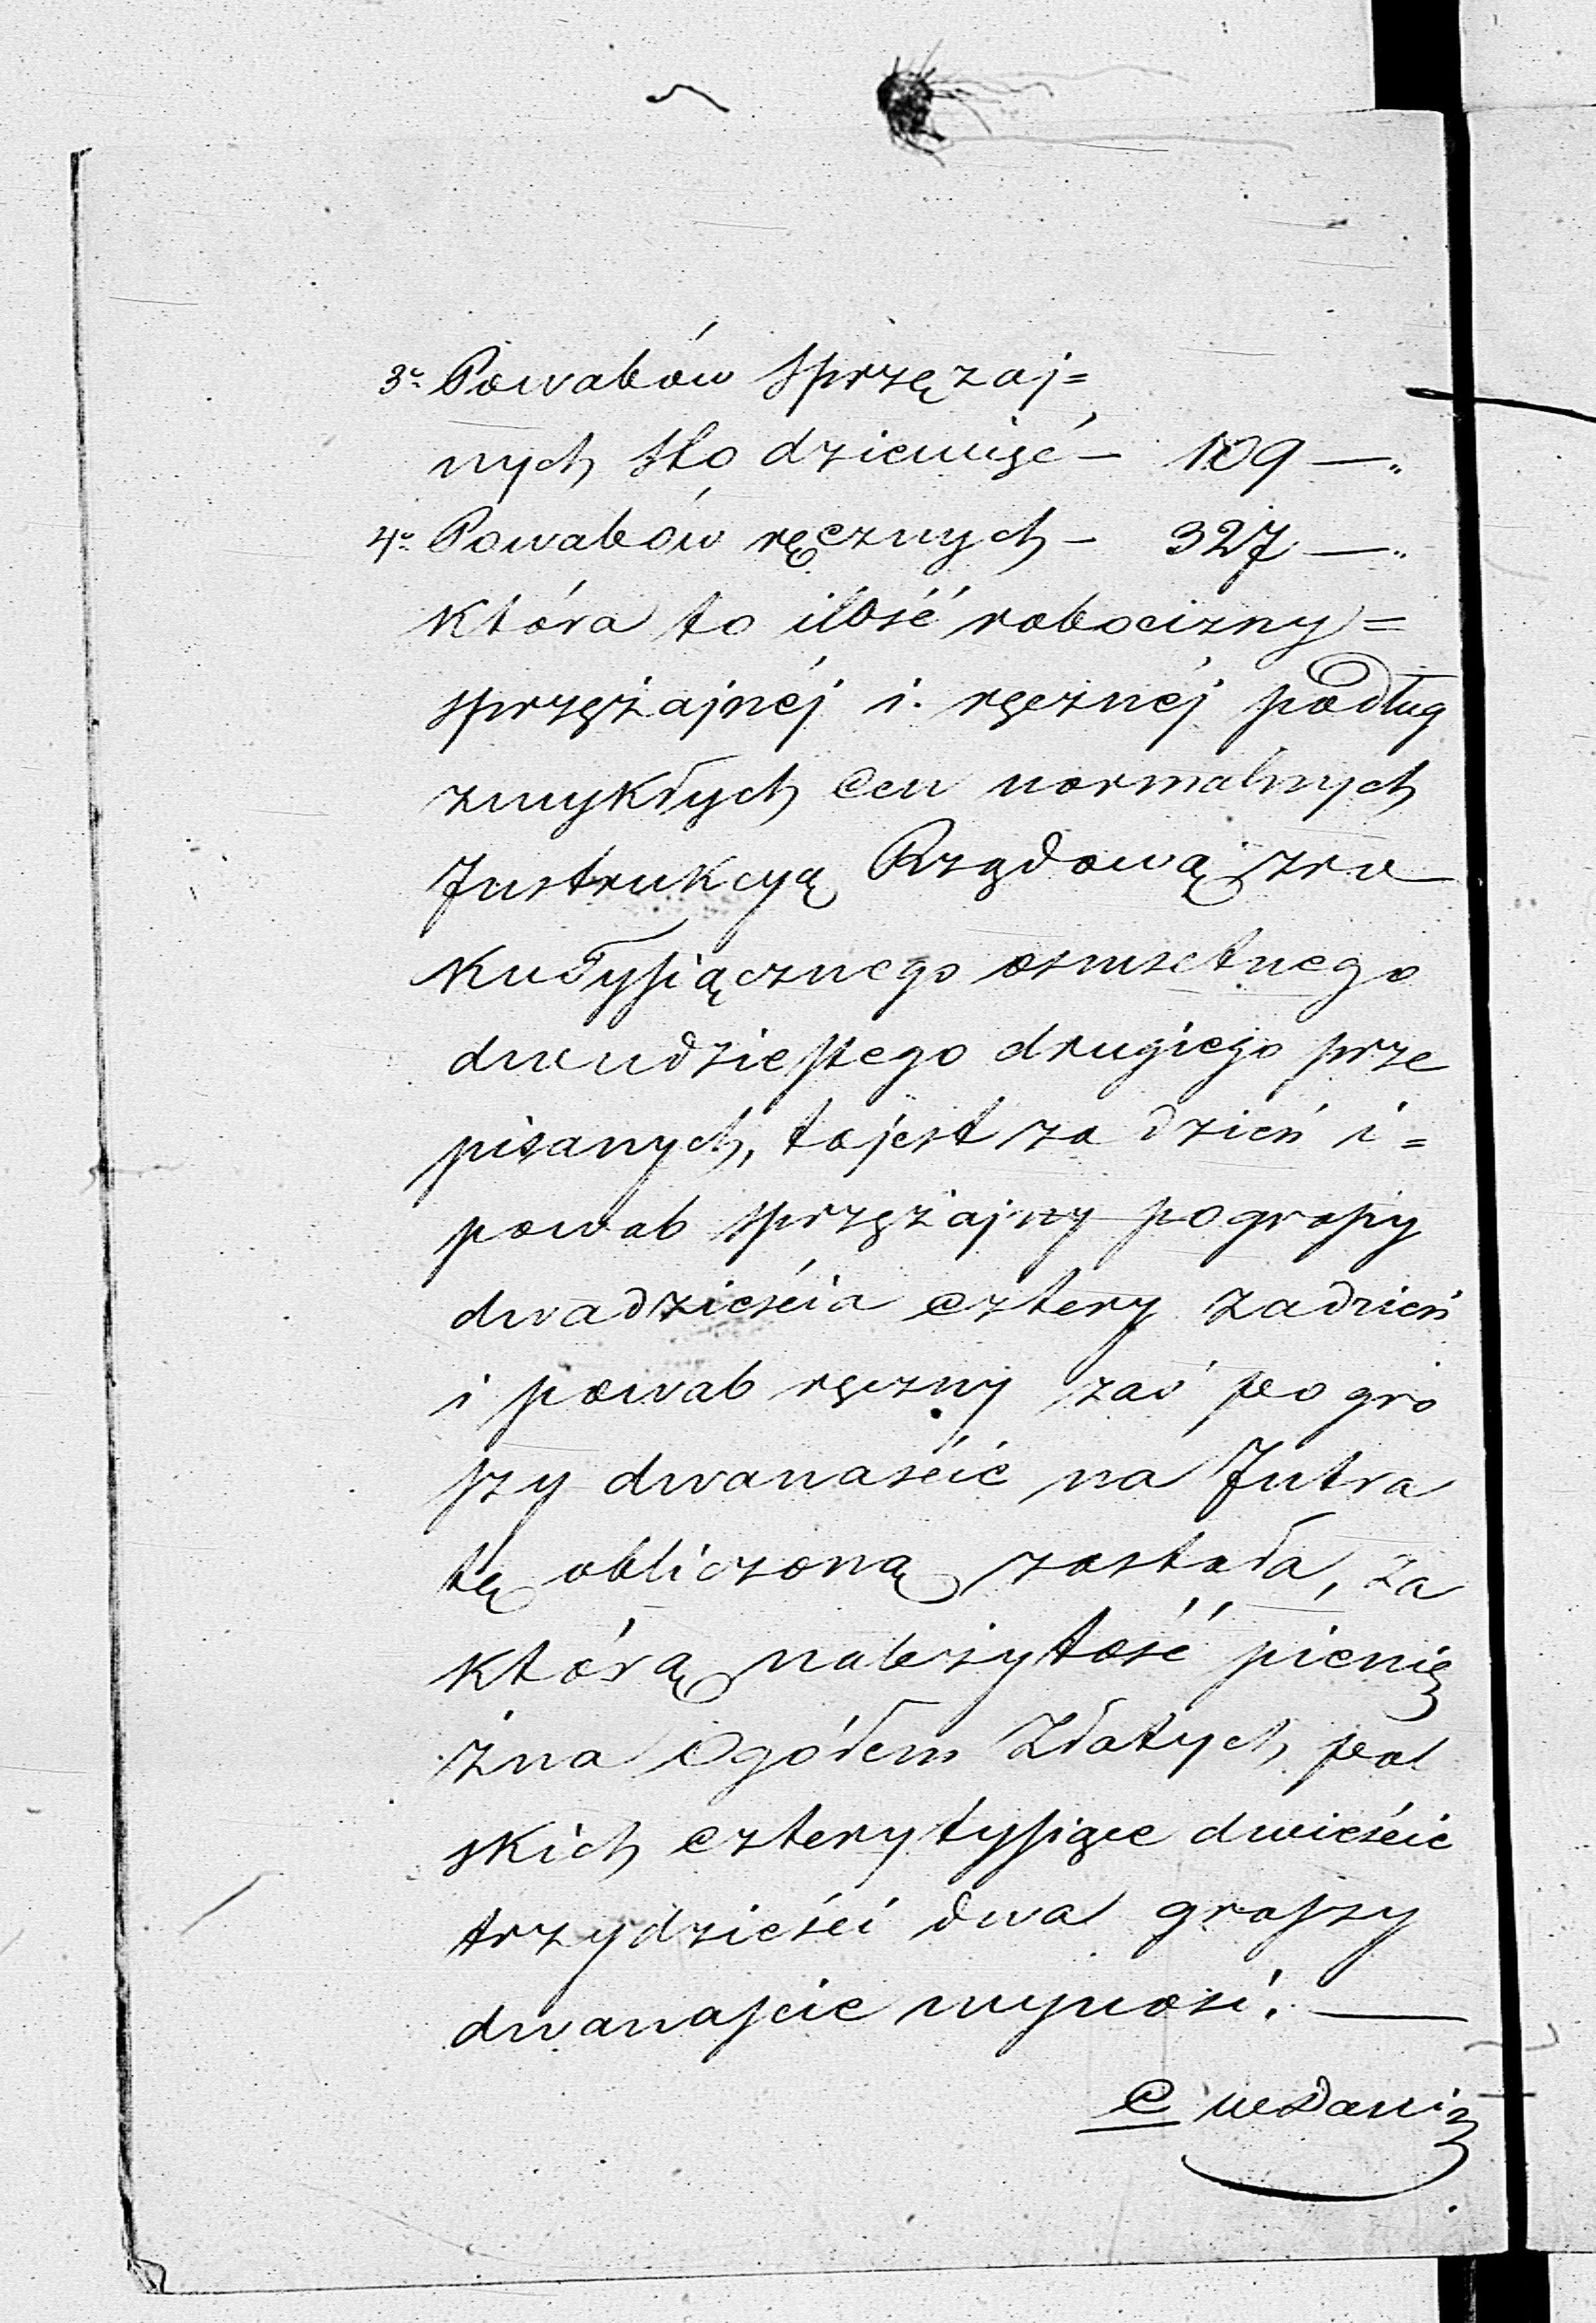 3o Powabów sprzęzaj=
nych sto dziewięć – 109 —„
4o Powabów ręcznych – 327 —„
która to ilość robocizny =
sprzężajnéj i ręcznéj podług
zwykłych cen normalnych
Instrukcyą Rządową zro
ku tysiącznego osmsetnego
dwudziestego drugiego prze
pisanych, tojest za dzień i =
powab sprzężajny pogroszy
dwadzieścia cztery zadzień
i powab ręczny zaś po gro
szy dwanaście na Intra
tę obliczoną została, za
którą należytość pienię
żna Ogółem Złotych pol
skich cztery tysiące dwieście
trzydzieści dwa groszy
dwanaście wynosi. —